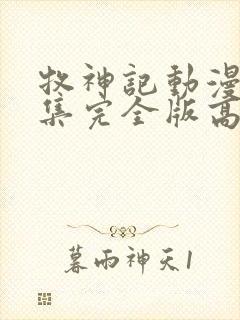 牧神記動漫
集完全版高
暮雨神天1